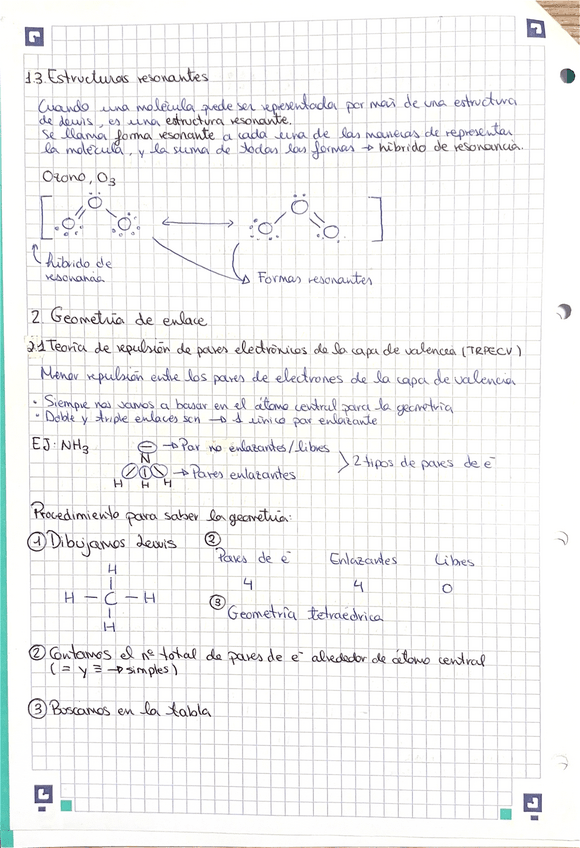 1.3. Estructuras resonantes
Cuando una molécula puede ser representada por más de una estructura
de lewis, es una estructura resonante.
Se llama forma resonante a cada una de las maneras de representar
la molécula, y la suma de todas las formas → híbrido de resonancia.
Ozono, O3
O O O ⟷ O O O
híbrido de
resonancia
Formas resonantes
2. Geometría de enlace
2.1 Teoría de repulsión de pares electrónicos de la capa de valencia (TRPECV)
Menor repulsión entre los pares de electrones de la capa de valencia
· Siempre nos vamos a basar en el átomo central para la geometría
· Doble y triple enlaces son → 1 único par enlazante
EJ: NH3
→ Par no enlazantes/libres
N
→ Pares enlazantes
2 tipos de pares de e-
H H H
Procedimiento para saber la geometría:
① Dibujamos Lewis
H
H – C – H
H
②
Pares de e- Enlazantes Libres
4 4 0
③
Geometría tetraédrica
② Contamos el nº total de pares de e- alrededor de átomo central
(= y ≡ → simples)
③ Buscamos en la tabla